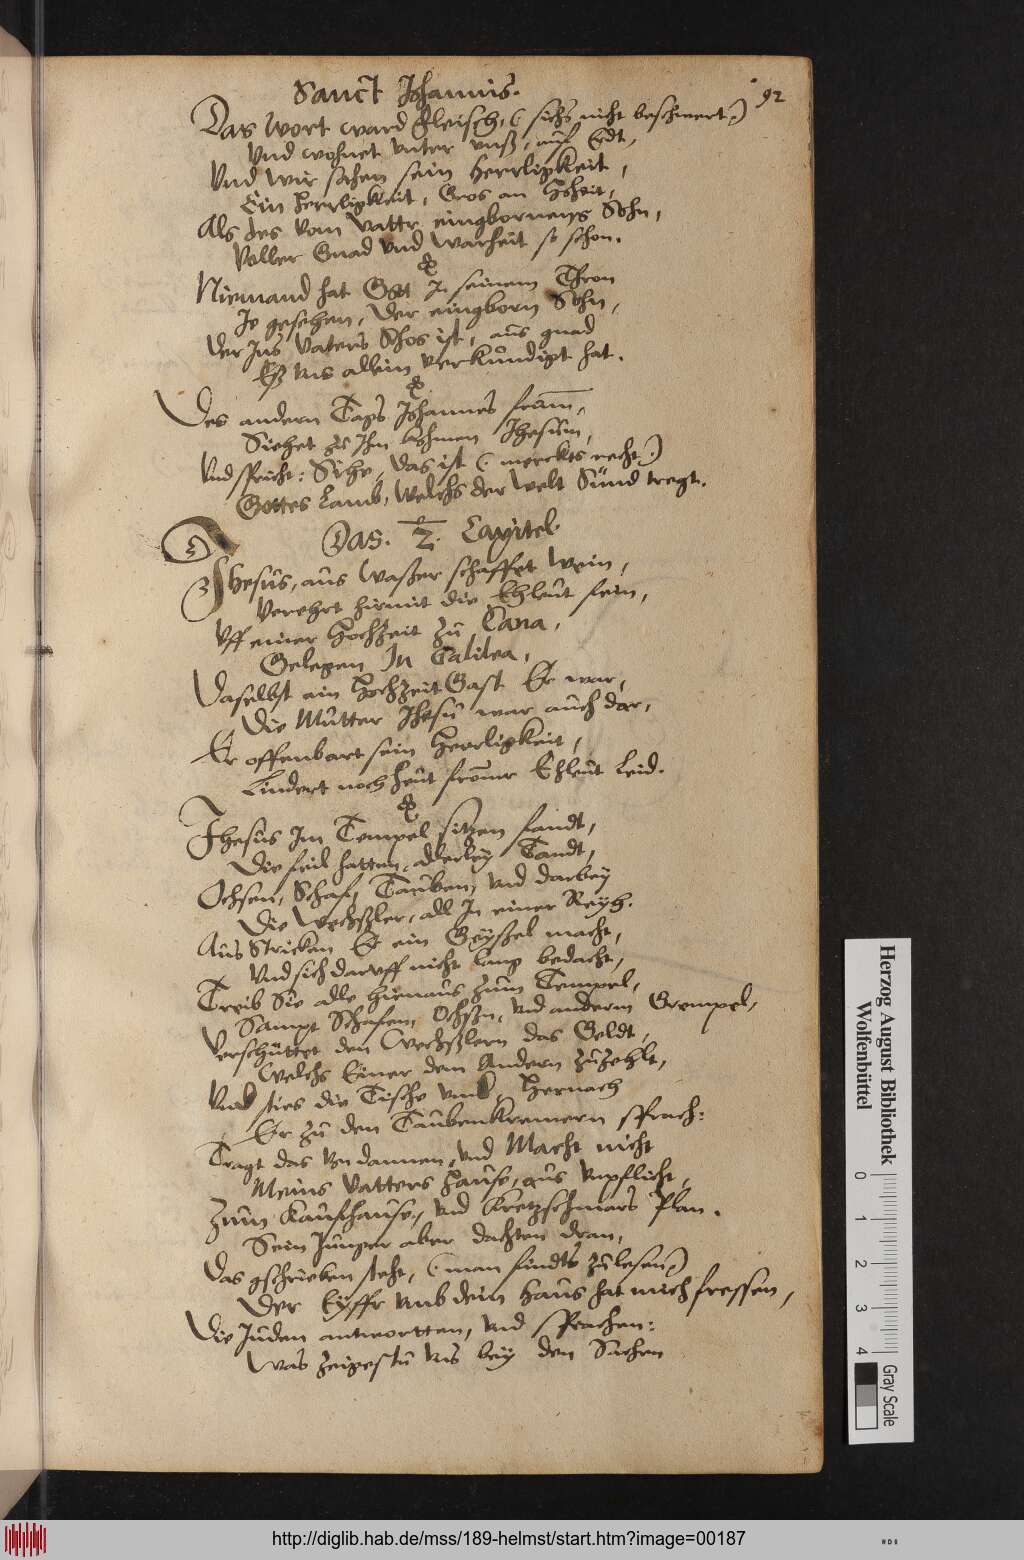 Sanct Johannis.
92
Das Wort ward Fleisch, (sichs nicht beschwert)
Vnd wohnet vnter vnß, auf Erdt,
Vnd wir sahen sein Herrligkeit,
Ein Herrligkeit, Gros an Hoheit,
Als des vom Vattr eingbornens Sohn,
Voller Gnad vnd Warheit so schon.
Niemand hat Gott In seinem Thron
Je gesehen, Der eingborn Sohn,
Der Ins Vaters Schos ist, aus gnad
Eß vns allein verkündigt hat.
Des andern Tags Johannes
Siehet zu Ihm kohmen Jhesum,
Vnd spricht: Sihe, das ist (merckts recht)
Gottes Lamb, Welchs der Welt Sünd tregt.
Das. 2. Capitel.
Jhesus, aus Waßer schaffet Wein,
Verehrt hirmit die Ehleut sein,
Vff einer Hochzeit zu Cana,
Gelegen In Galilea,
Daselbst ein Hochzeit Gast Er war,
Die Mutter Jhesu war auch dar,
Er offenbart sein Herrligkeit,
Lindert noch heut fromr Ehleut Leid.
Jhesus Im Tempel sitzen fandt,
Die feil hatten, allerley Tandt,
Ochsen, Schaf, Tauben, vnd darbey
Die Wechsler, all In einer Reyh.
Aus Stricken Er ein Geyßel macht,
Vnd sich daruff nicht lang bedacht,
Treib Sie alle hienaus zum Tempel,
Sampt Schafen, Ochßn, vnd anderm Grempel,
Verschüttet den Wechßlern das Geldt,
Welchs Einer dem Andern zuzehlt,
Vnd sties die Tische vmb, Hernach
Er zu den Taubenkremern sprach:
Tragt das von dannen, vnd Macht nicht
Meins Vatters Hause, aus vnpflicht,
Zum Kaufhause, vnd Kretzschmars Plan.
Sein Jünger aber dachten dran,
Das gschrieben steht, (man findts zulesen)
Der Eyffr vmb dein Haus hat mich fressen,
Die Juden antwortten, vnd sprachen:
Was zeigestu vns bey den Sachen
Herzog August Bibliothek
Wolfenbüttel
0 1 2 3 4
Gray Scale
http://diglib.hab.de/mss/189-helmst/start.htm?image=00187